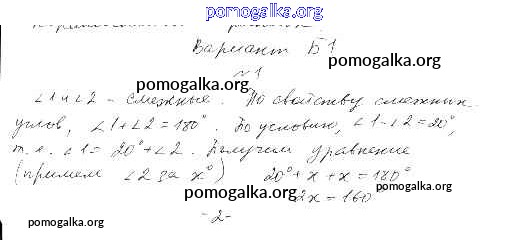 pomogalka.org
Вариант Б1
pomogalka.org
№1
pomogalka.org
∠1 и ∠2 - смежные. По свойству смежных
углов, ∠1+∠2=180°. По условию, ∠1-∠2=20°,
т.е. ∠1= 20°+∠2. Получим уравнение
(примем ∠2 за x°) 20°+x+x=180°
pomogalka.org
2x=160°
pomogalka.org
-2-
pomogalka.org